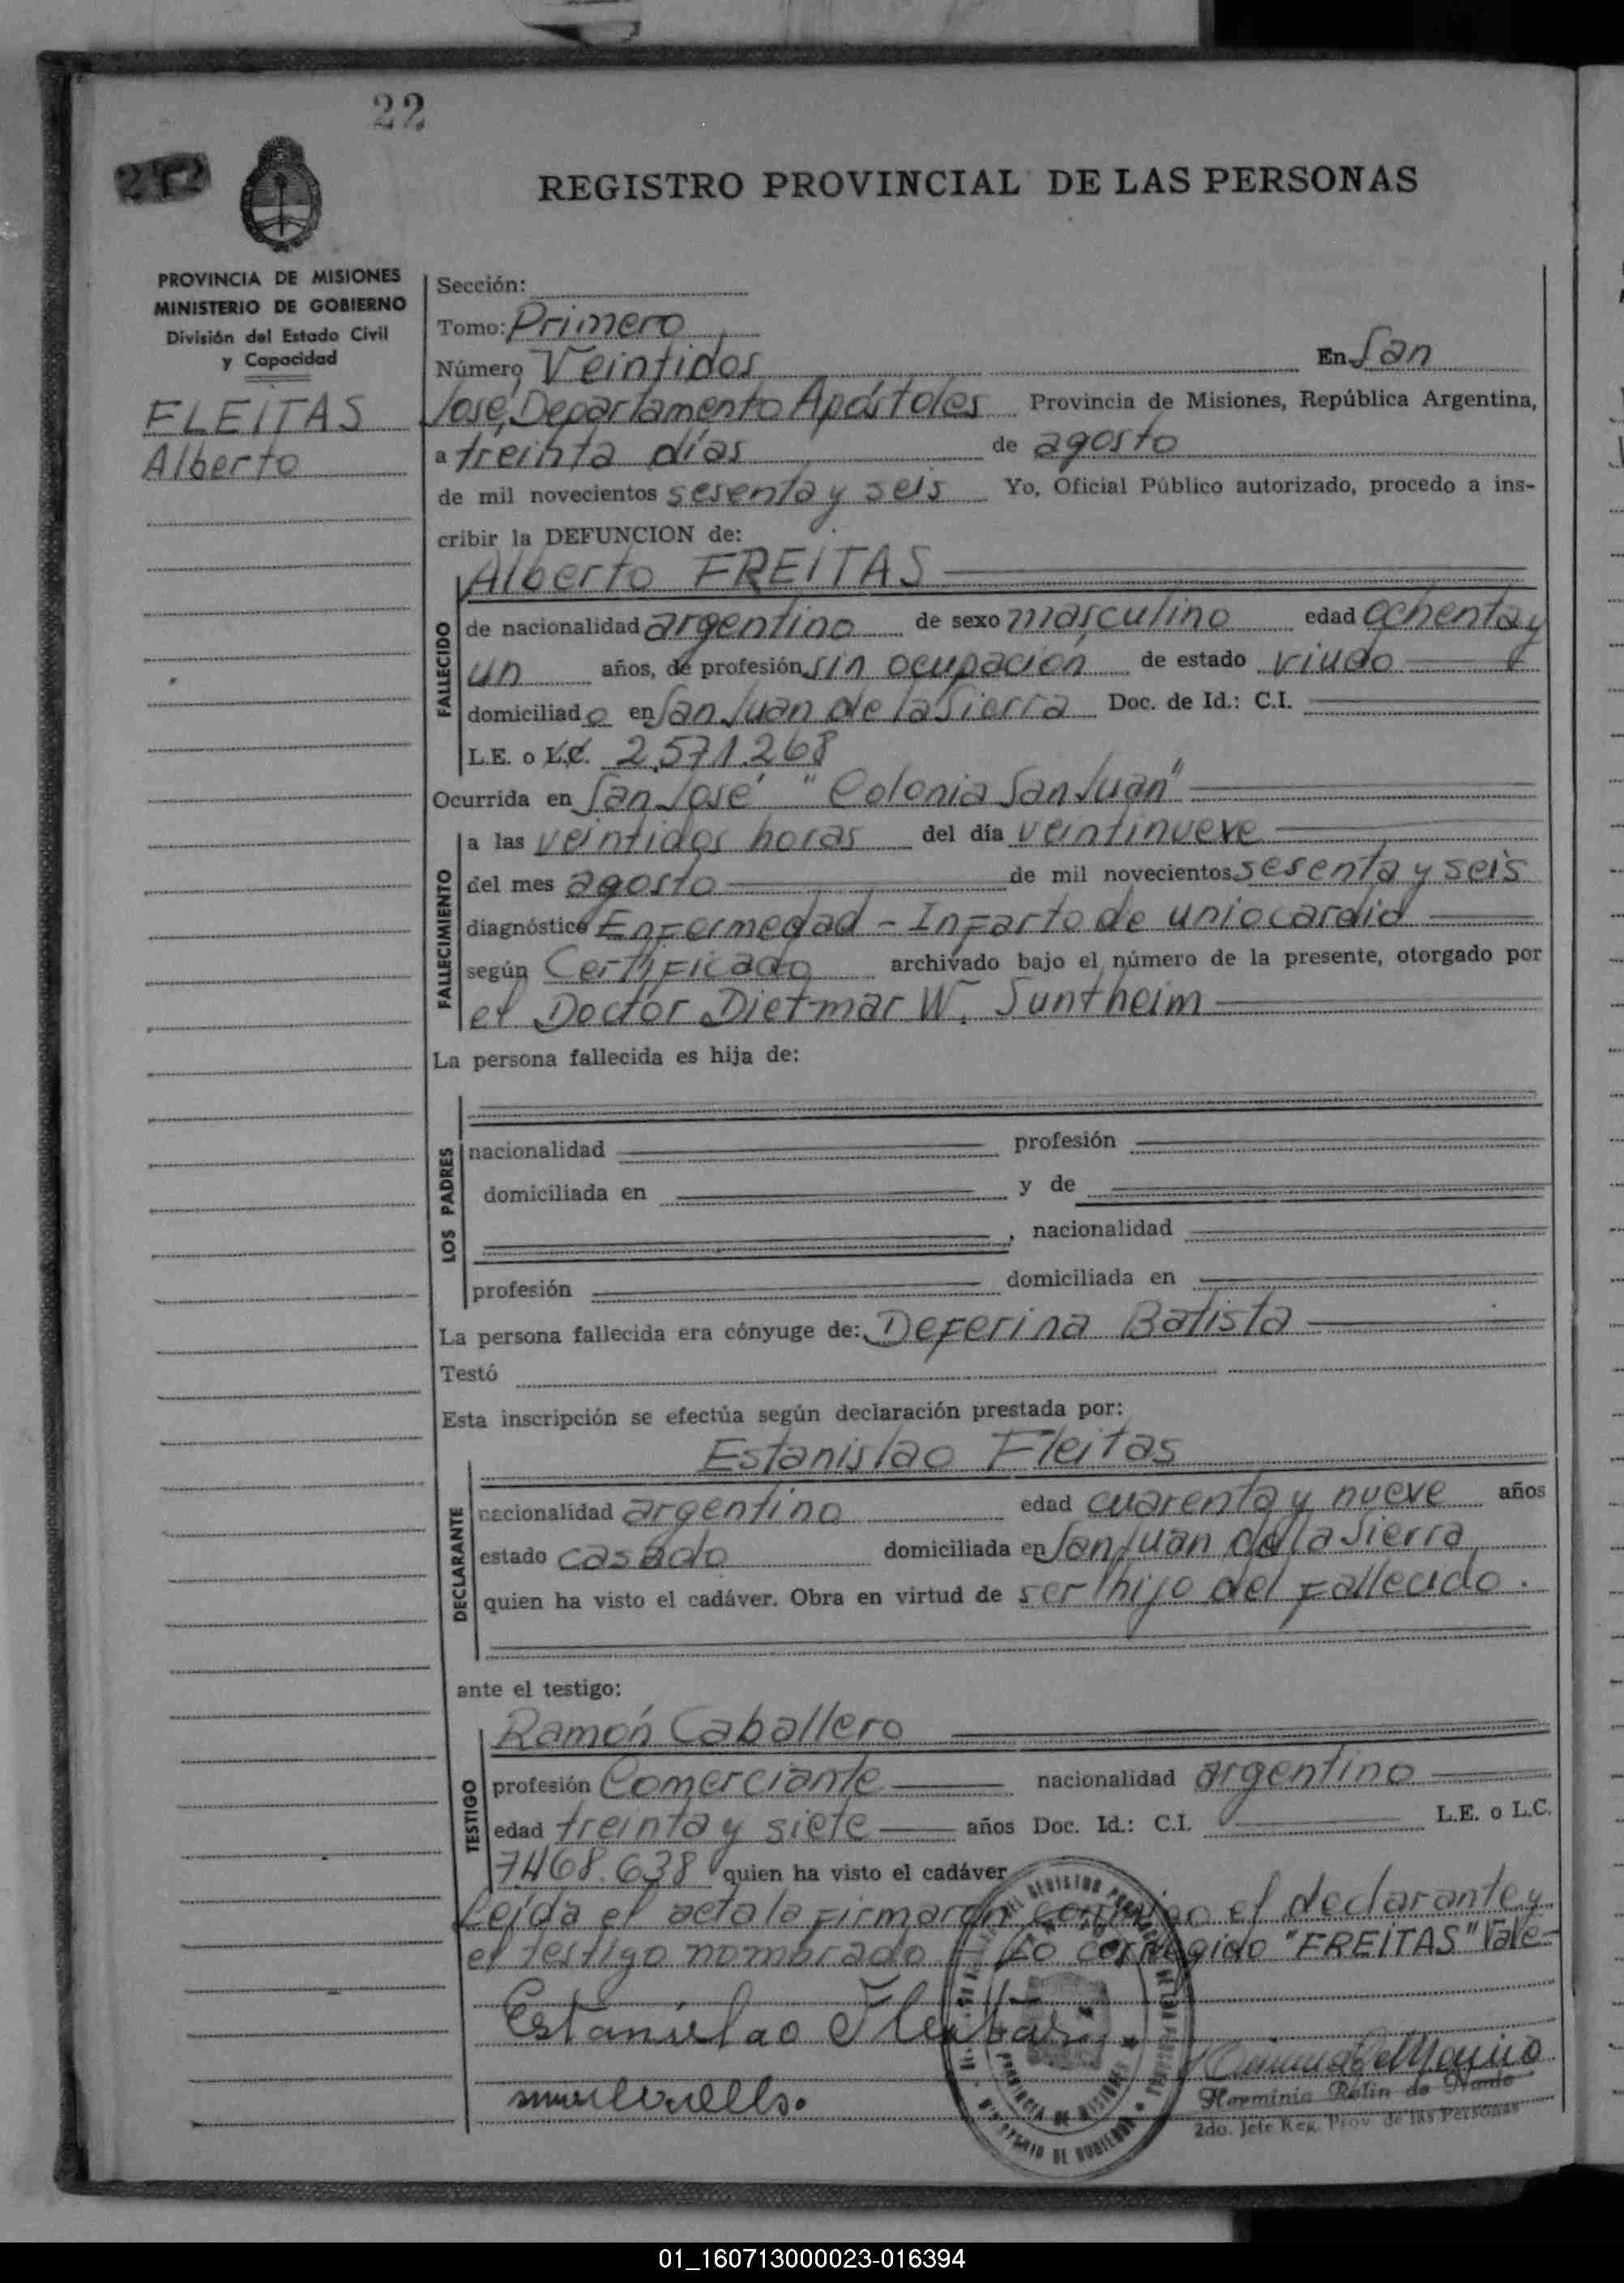 22
212
REGISTRO PROVINCIAL DE LAS PERSONAS
PROVINCIA DE MISIONES
MINISTERIO DE GOBIERNO
División del Estado Civil
y Capacidad
FLEITAS
Alberto
Sección:
Tomo: Primero
Número Veintidos En San
José, Departamento Apóstoles Provincia de Misiones, República Argentina,
a treinta días de agosto
de mil novecientos sesenta y seis Yo, Oficial Público autorizado, procedo a ins-
cribir la DEFUNCION de:
Alberto FREITAS
FALLECIDO
de nacionalidad argentino de sexo masculino edad ochenta y
un años, de profesión sin ocupación de estado viudo
domiciliado en San Juan de la Sierra Doc. de Id.: C.I.
L.E. o L.C. 2.571.268
Ocurrida en San José "Colonia San Juan"
FALLECIMIENTO
a las veintidos horas del día veintinueve
del mes agosto de mil novecientos sesenta y seis
diagnóstico Enfermedad - Infarto de uniocardio
según Certificado archivado bajo el número de la presente, otorgado por
el Doctor Dietmar W. Suntheim
La persona fallecida es hija de:
LOS PADRES
nacionalidad profesión
domiciliada en y de
, nacionalidad
profesión domiciliada en
La persona fallecida era cónyuge de: Deferina Batista
Testó
Esta inscripción se efectúa según declaración prestada por:
Estanislao Fleitas
DECLARANTE
nacionalidad argentino edad cuarenta y nueve años
estado casado domiciliada en San Juan de la Sierra
quien ha visto el cadáver. Obra en virtud de ser hijo del fallecido.
ante el testigo:
Ramón Caballero
TESTIGO
profesión Comerciante nacionalidad argentino
edad treinta y siete años Doc. Id.: C.I. L.E. o L.C.
7.468.638 quien ha visto el cadáver
Leída el acta la firmaron conmigo el declarante y
el testigo nombrado - Lo corregido "FREITAS" Vale-
Estanislao Fleitas
PROVINCIA DE MISIONES
MINISTERIO DE GOBIERNO
Herminia Rolin de
2do. Jefe Reg. Prov. de las Personas
01_160713000023-016394